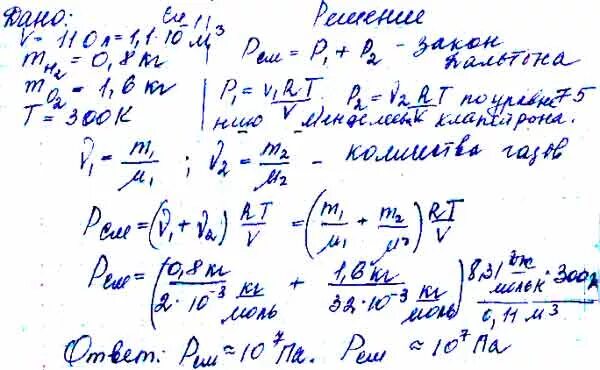 Дано: Си Решение
V = 110 л = 1,1·10⁻¹ м³
m_H₂ = 0,8 кг Pсм = P₁ + P₂ - закон Дальтона
m_O₂ = 1,6 кг
T = 300К
P₁ = ν₁RT/V P₂ = ν₂RT/V по уравне 75
нию Менделеева Клапейрона.
ν₁ = m₁/μ₁ ; ν₂ = m₂/μ₂ - количества газов
Pсм = (ν₁ + ν₂) RT/V = (m₁/μ₁ + m₂/μ₂) RT/V
Pсм = (0,8 кг / 2·10⁻³ кг/моль + 1,6 кг / 32·10⁻³ кг/моль) 8,31 Дж/моль К · 300К / 0,11 м³
Ответ: Pсм ≈ 10⁷ Па. Pсм ≈ 10⁷ Па